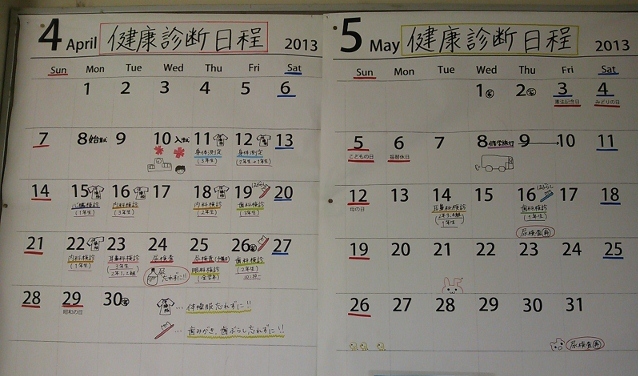 4 April 健康診断日程 2013
Sun Mon Tue Wed Thu Fri Sat
1 2 3 4 5 6
7 8 始業式 9 10 入学式 11 12 13
身体測定
14 15 16 17 18 19 20
内科検診 内科検診 歯科検診
(3年生) (2年生) (1年生)
21 22 23 24 25 26 27
内科検診 耳鼻科検診 尿検査 尿検査 歯科検診
(1年生) 眼科検診 (2年生)
尿 忘れずに!!
28 29 30
昭和の日
…体操服忘れずに!!
…歯みがき、歯ブラシ忘れずに!!
5 May 健康診断日程 2013
Sun Mon Tue Wed Thu Fri Sat
1 2 3 4
憲法記念日 みどりの日
5 6 7 8 修学旅行 9 10 11
こどもの日 振替休日
12 13 14 15 16 17 18
母の日 耳鼻科検診 歯科検診
尿検査
19 20 21 22 23 24 25
26 27 28 29 30 31
尿検査